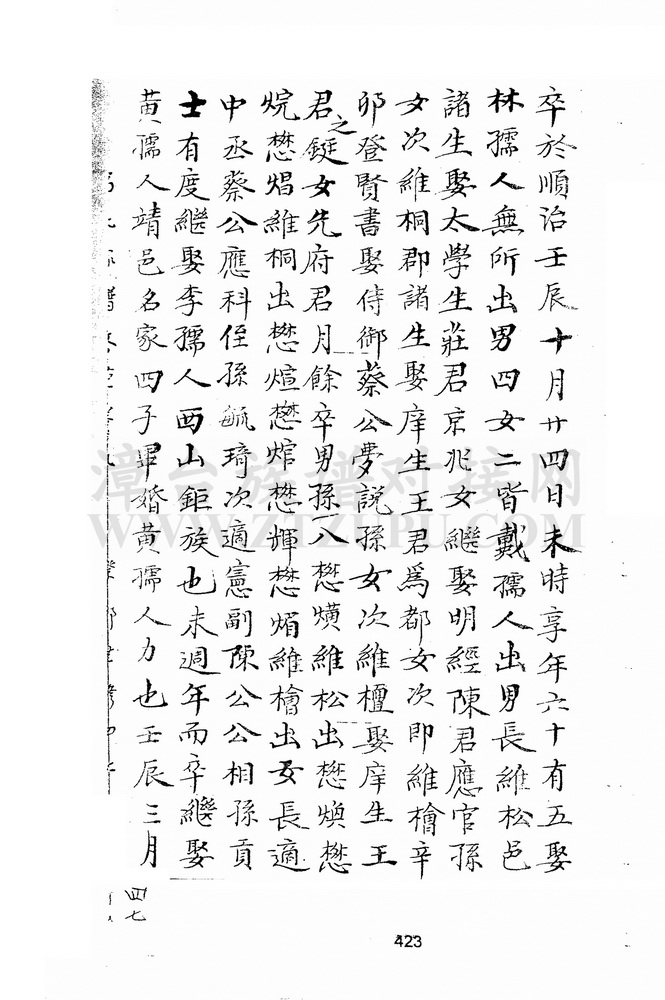 卒於順治壬辰十月廿四日未時享年六十有五娶
林孺人無所出男四女二皆戴孺人出男長維松邑
諸生娶太學生莊君京兆女繼娶明經陳君應官孫
女次維桐郡諸生娶庠生王君為都女次即維檜辛
卯登賢書娶侍御蔡公夢說孫女次維檀娶庠生王
君之鋌女先府君月餘卒男孫八懋熿維松出懋煥懋
烷懋焻維桐出懋煊懋懋輝懋煝維檜出女長適
中丞蔡公應科侄孫毓琦次適憲副陳公公相孫貢
士有度繼娶李孺人西山鉅族也未週年而卒繼娶
黃孺人靖邑名家四子畢婚黃孺人力也壬辰三月
四七
423
漳台族谱对接网
WWW.ZTZUPU.COM